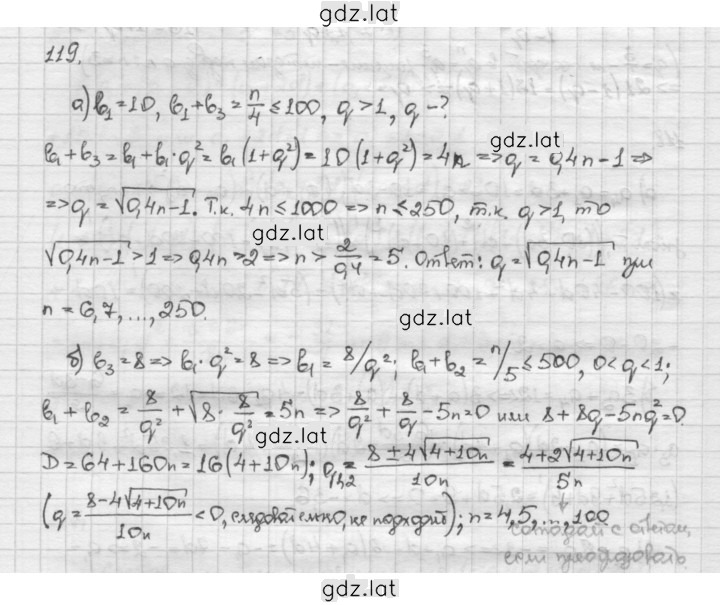 gdz.lat
119.
а) b₁ = 10, b₁ + b₃ = n/4 ≤ 100, q > 1, q - ?
gdz.lat
b₁ + b₃ = b₁ + b₁·q² = b₁(1+q²) = 10(1+q²) = 4n => q = 0,4n - 1 =>
=> q = √(0,4n-1). Т.к. 4n ≤ 1000 => n ≤ 250, т.к. q > 1, то
gdz.lat
√(0,4n-1) > 1 => 0,4n > 2 => n > 2/0,4 = 5. Ответ: q = √(0,4n-1) при
n = 6,7,...,250.
gdz.lat
б) b₃ = 8 => b₁·q² = 8 => b₁ = 8/q²; b₁ + b₂ = n/5 ≤ 500, 0 < q < 1;
b₁ + b₂ = 8/q² + √(8·8/q²) = 5n => 8/q² + 8/q - 5n = 0 или 8 + 8q - 5nq² = 0.
gdz.lat
D = 64 + 160n = 16(4+10n); q₁,₂ = (8 ± 4√(4+10n))/10n = (4+2√(4+10n))/5n
(q = (8-4√(4+10n))/10n < 0, следовательно, не подходит); n = 4,5,...,100
совпадай с ответам,
если преобразовать.
gdz.lat